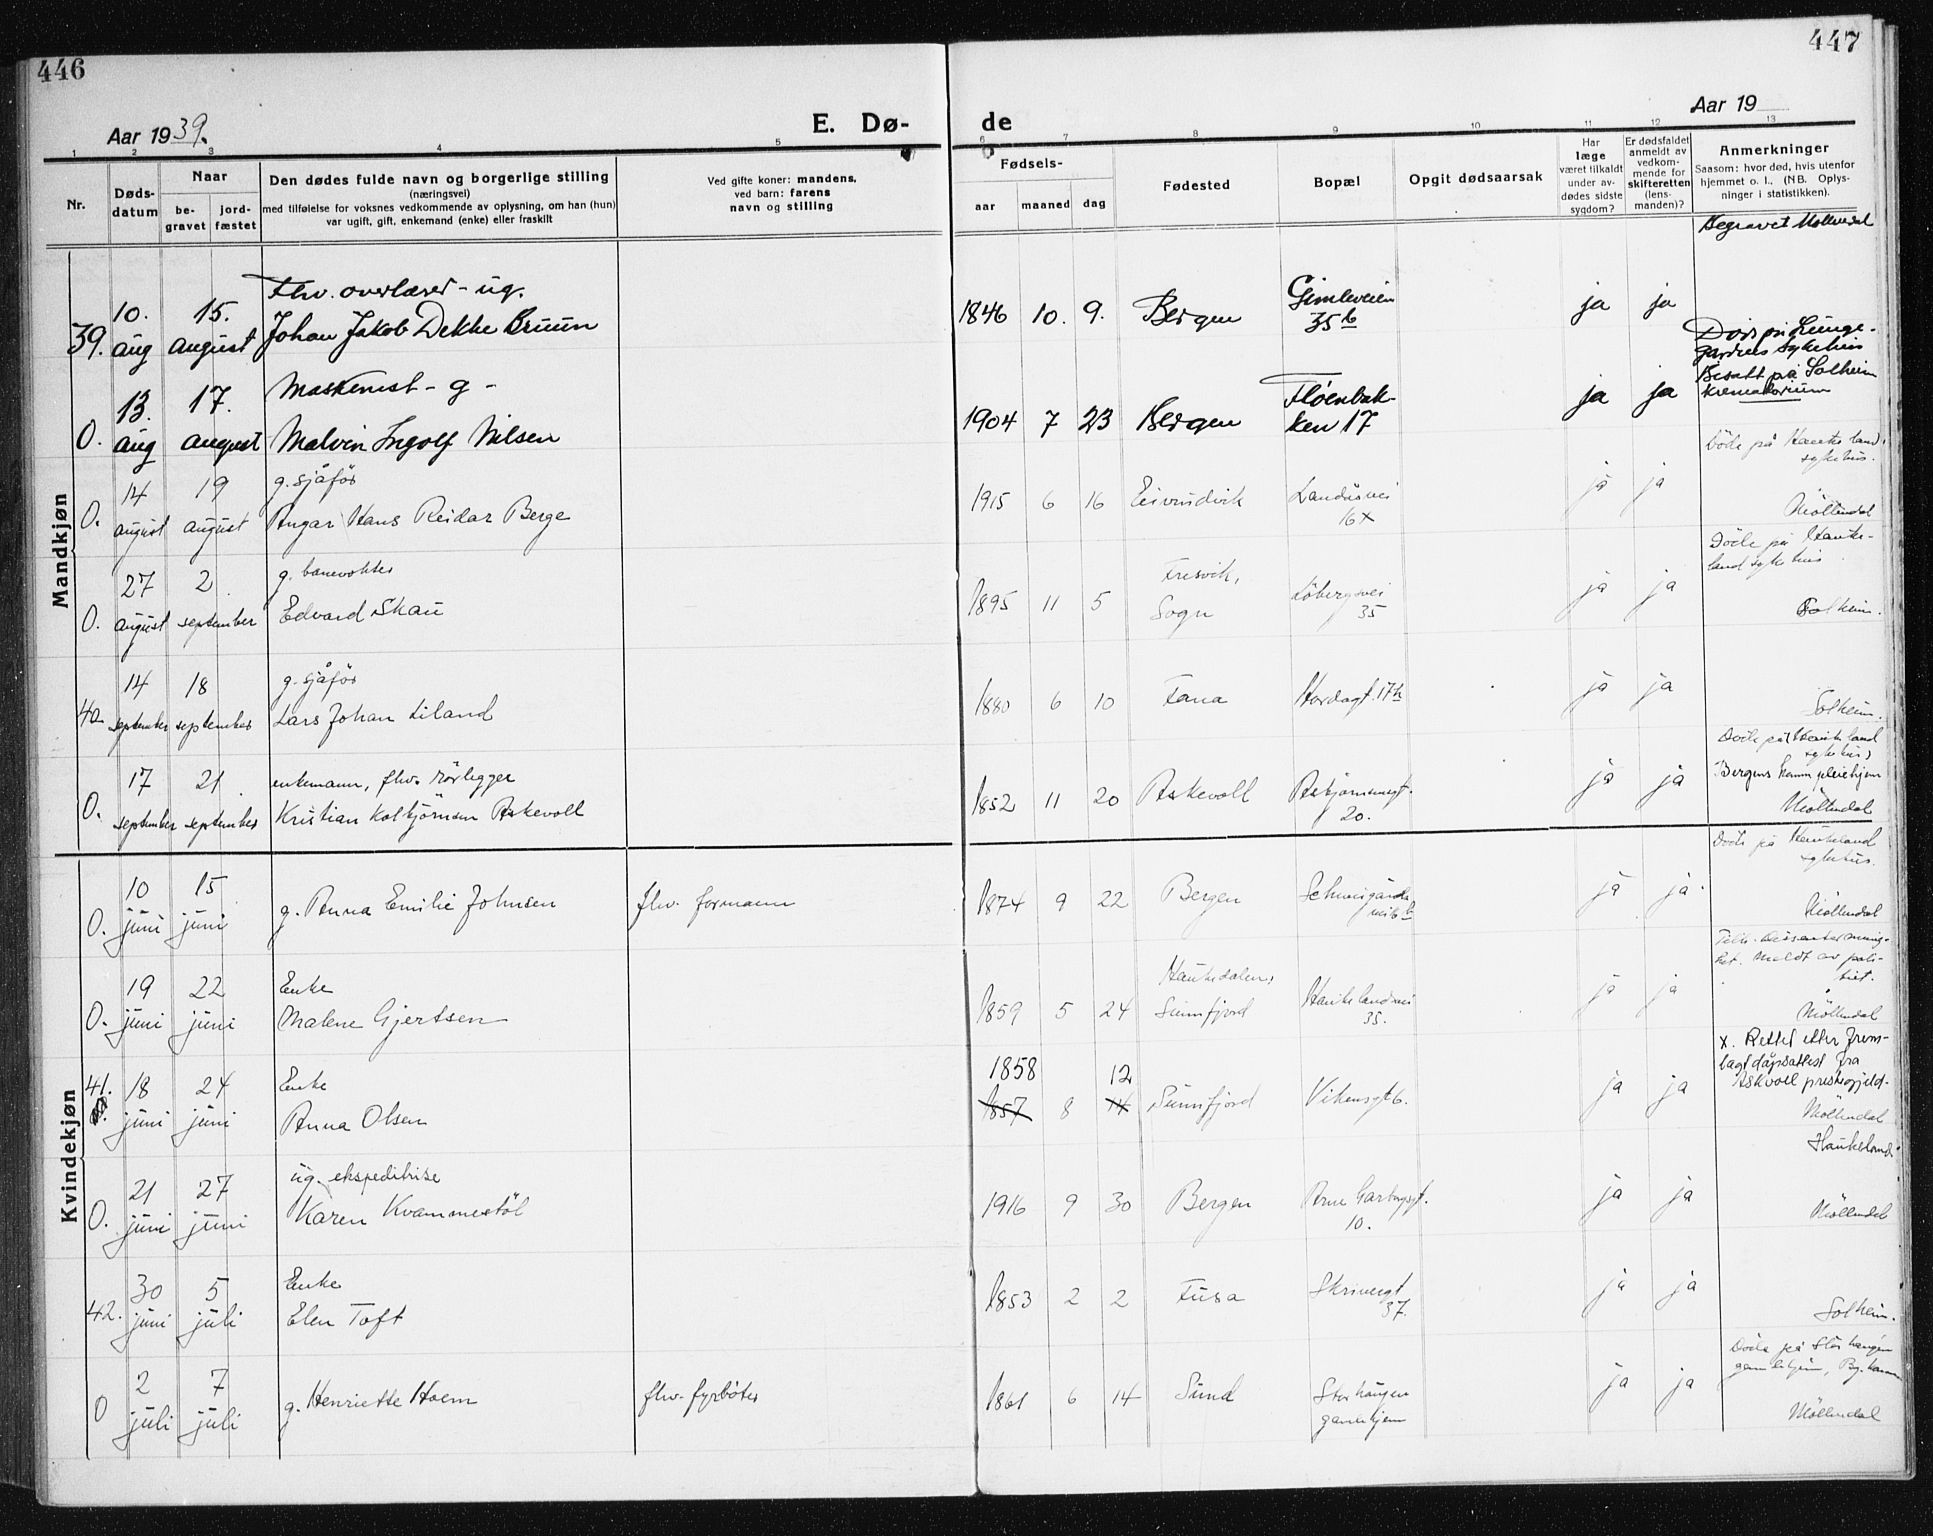 446
447
Aar 1939.
E. Dø-
de
Aar 19
1 2 3 4 5 6 7 8 9 10 11 12 13
Nr.
Døds-
datum
Naar
be-
gravet
jord-
fæstet
Den dødes fulde navn og borgerlige stilling
(næringsvei)
med tilføielse for voksnes vedkommende av oplysning, om han (hun)
var ugift, gift, enkemand (enke) eller fraskilt
Ved gifte koner: mandens,
ved barn: farens
navn og stilling
Fødsels-
aar
maaned
dag
Fødested
Bopæl
Opgit dødsaarsak
Har
læge
været tilkaldt
under av-
dødes sidste
sygdom?
Er dødsfaldet
anmeldt av
vedkom-
mende for
skifteretten
(lens-
manden)?
Anmerkninger
Saasom: hvor død, hvis utenfor
hjemmet o. l., (NB. Oplys-
ninger i statistikken).
Mandkjøn
Begravet Møllendal
Fhv. overlærer - ug.
39. 10. aug 15. august Johan Jakob Dekke Bruun 1846 10. 9. Bergen Gimleveien 35b ja ja
Død på Lunge-
gardens sykehus
Bisatt på Solheim
krematorium
Maskinist - g -
0. 13. aug 17. august Malvin Ingolf Nilsen 1904 7 23 Bergen Fløenbak-
ken 17 ja ja
Döde på Haukeland
sykehus.
g. sjåför
0. 14 august 19 august Ragnar Hans Reidar Berge 1915 6 16 Eivindvik Landåsvei
16 ja ja Möllendal
Döde på Hauke-
land sykehus
g. banevokter
0. 27 august 2 september Edvard Skau 1895 11 5 Fresvik,
Sogn Löbergsvei
35 ja ja Solheim.
g. sjåför
40 14 september 18 september Lars Johan Liland 1880 6 10 Fana Hordagt. 17b ja ja Solheim.
Döde på (Haukeland
sykehus)
Bergens komm. pleiehjem
enkemann, fhv. rörlegger
0. 17 september 21 september Kristian Kolbjörnsen Askevoll 1852 11 20 Askevoll Asbjörnsensgt.
20. ja ja Möllendal
Kvindekjøn
Döde på Haukeland
sykehus.
0. 10 juni 15 juni g. Anna Emilie Johnsen fhv. formann 1874 9 22 Bergen Schweigårds
vei 6 b ja ja. Möllendal
meldt av poli-
tiet.
Enke
0. 19 juni 22 juni Malene Gjertsen 1859 5 24 Haukedalen,
Sunnfjord Haukelandsvei
35. ja ja Möllendal
x. Rettet etter frem-
lagt dåpsattest fra
Askvoll prestegjeld.
Enke
1858 12
41. 18 juni 24 juni Anna Olsen 1857 8 14 Sunnfjord Vikensgt 6. ja ja Möllendal
Haukeland
ug. ekspeditrise
0. 21 juni 27 juni Karen Kvammestöl 1916 9 30 Bergen Arne Garborgsgt.
10. ja ja Möllendal
Enke
42. 30 juni 5 juli Elen Toft 1853 2 2 Fusa Skivergt
37. ja ja Solheim.
Döde på Storhaugen
gamlehjem,
0 2 juli 7 juli g. Henriette Hoem fhv. fyrböter 1861 6 14 Sund Storhaugen
gamlehjem ja ja Möllendal